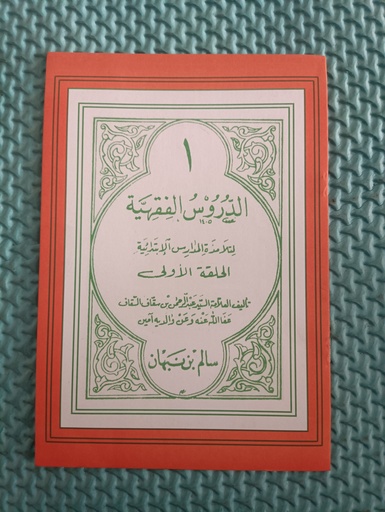 ١
الدُّرُوسُ الفِقهِيَّة
لتلامذة المدارس الإبتدائية
الحلقة الأولى
تأليف العلامة السيد عبد الرحمن بن سقاف السقاف
عفا الله عنه وعن والديه آمين
سالم بن نبهان